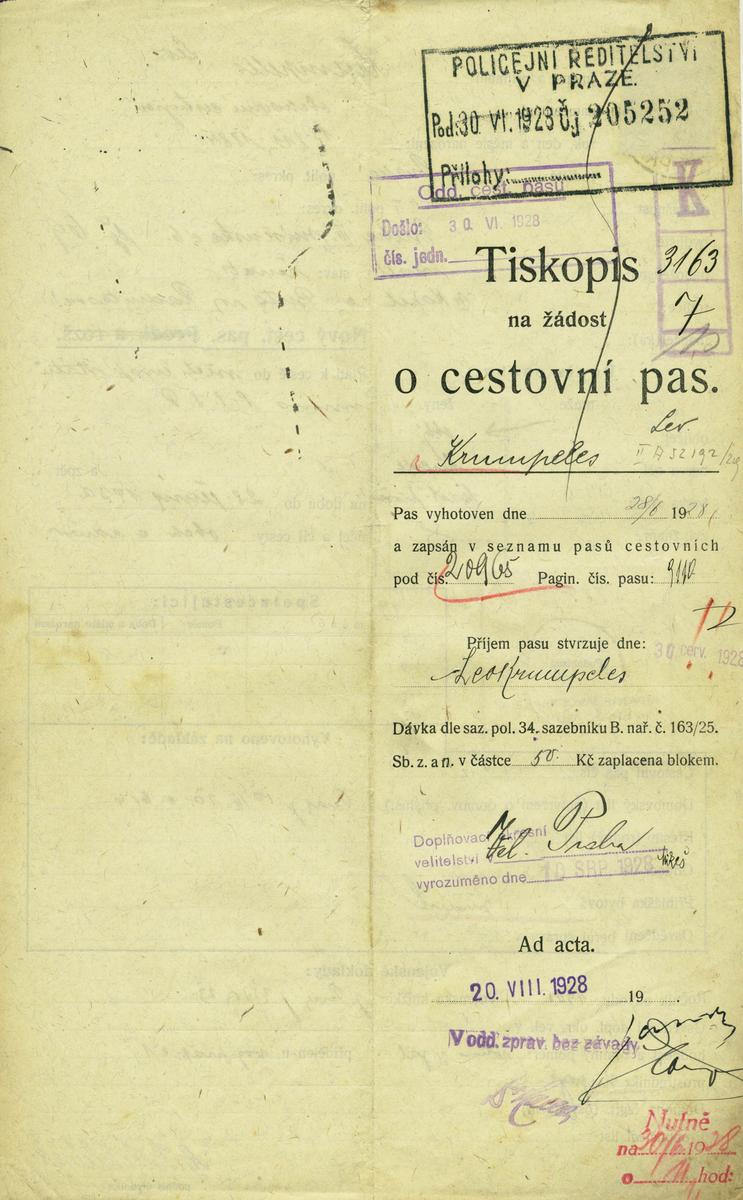 POLICEJNÍ ŘEDITELSTVÍ
V PRAZE.
Pod: 30 VI. 1928 Čj 205252
Přílohy:
Odd. cest. pasů
Došlo: 30 VI. 1928
čís. jedn.
K
Tiskopis 3163
na žádost 7
o cestovní pas.
Leo
Krumpeles II A 52192/29
Pas vyhotoven dne 28/6 1928
a zapsán v seznamu pasů cestovních
pod čís. 20965 Pagin. čís. pasu: 9110
Příjem pasu stvrzuje dne: 30 červ. 1928
Leo Krumpeles
Dávka dle saz. pol. 34. sazebníku B. nař. č. 163/25.
Sb. z. a n. v částce 50 Kč zaplacena blokem.
Doplňovací okresní
velitelství v Praha
vyrozuměno dne 10 SRP. 1928
Ad acta.
20. VIII. 1928 19
V odd. zprav. bez závady.
Nutné
na 30/6 1928
o 11 hod: